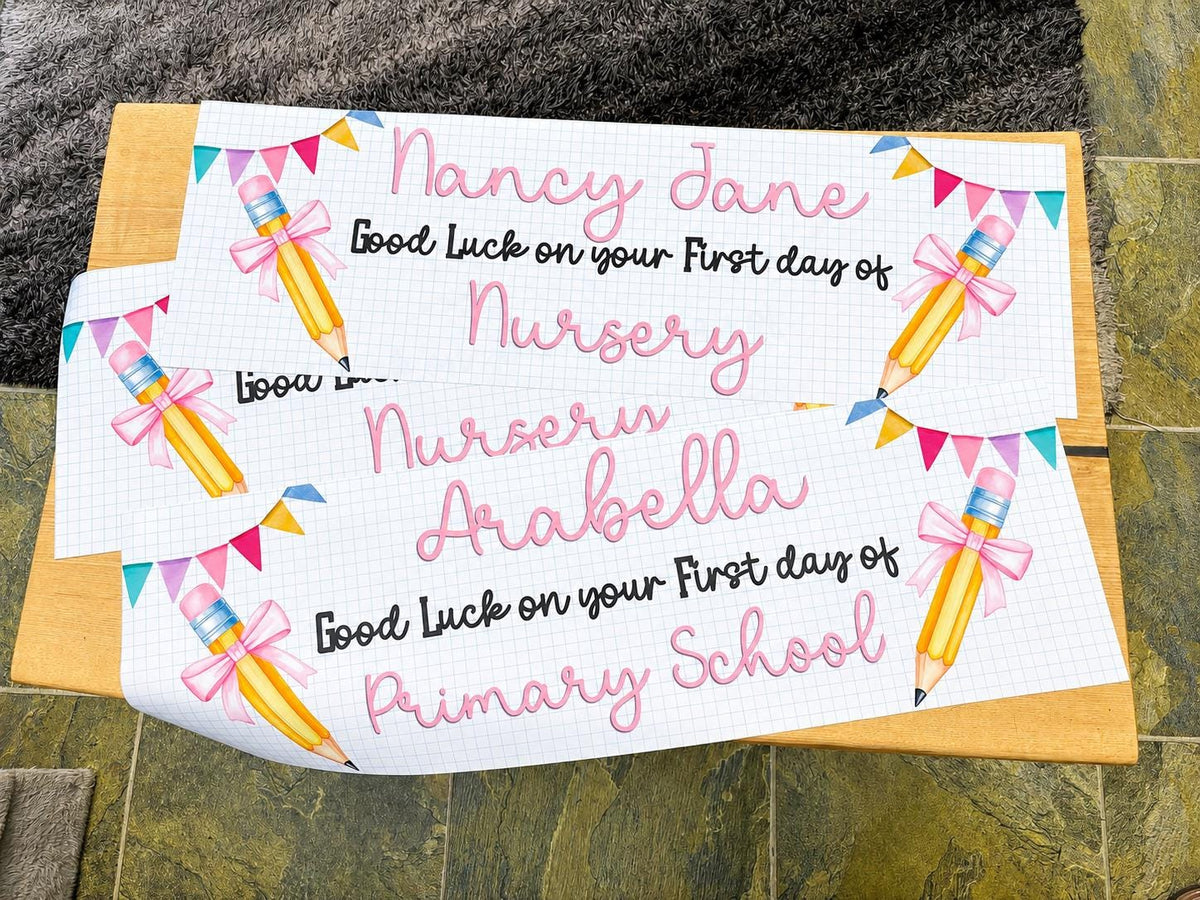 Nancy Jane
Good Luck on your First day of
Nursery
Good
Nursery
Arabella
Good Luck on your First day of
Primary School